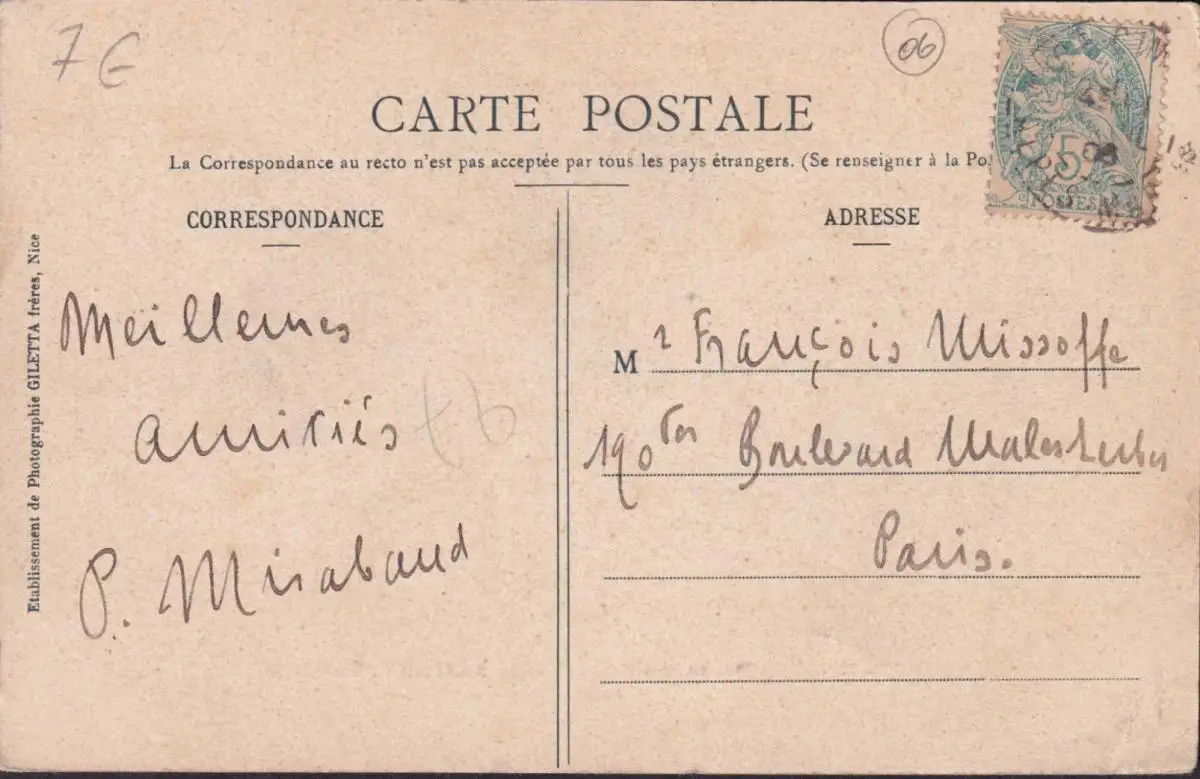 7 €
06
CARTE POSTALE
La Correspondance au recto n'est pas acceptée par tous les pays étrangers. (Se renseigner à la Po
5
POSTES
08
CORRESPONDANCE
ADRESSE
Etablissement de Photographie GILETTA frères, Nice
Meilleures
amitiés
P. Mirabaud
M r François Missoffe
190 ter Boulevard Malesherbes
Paris.